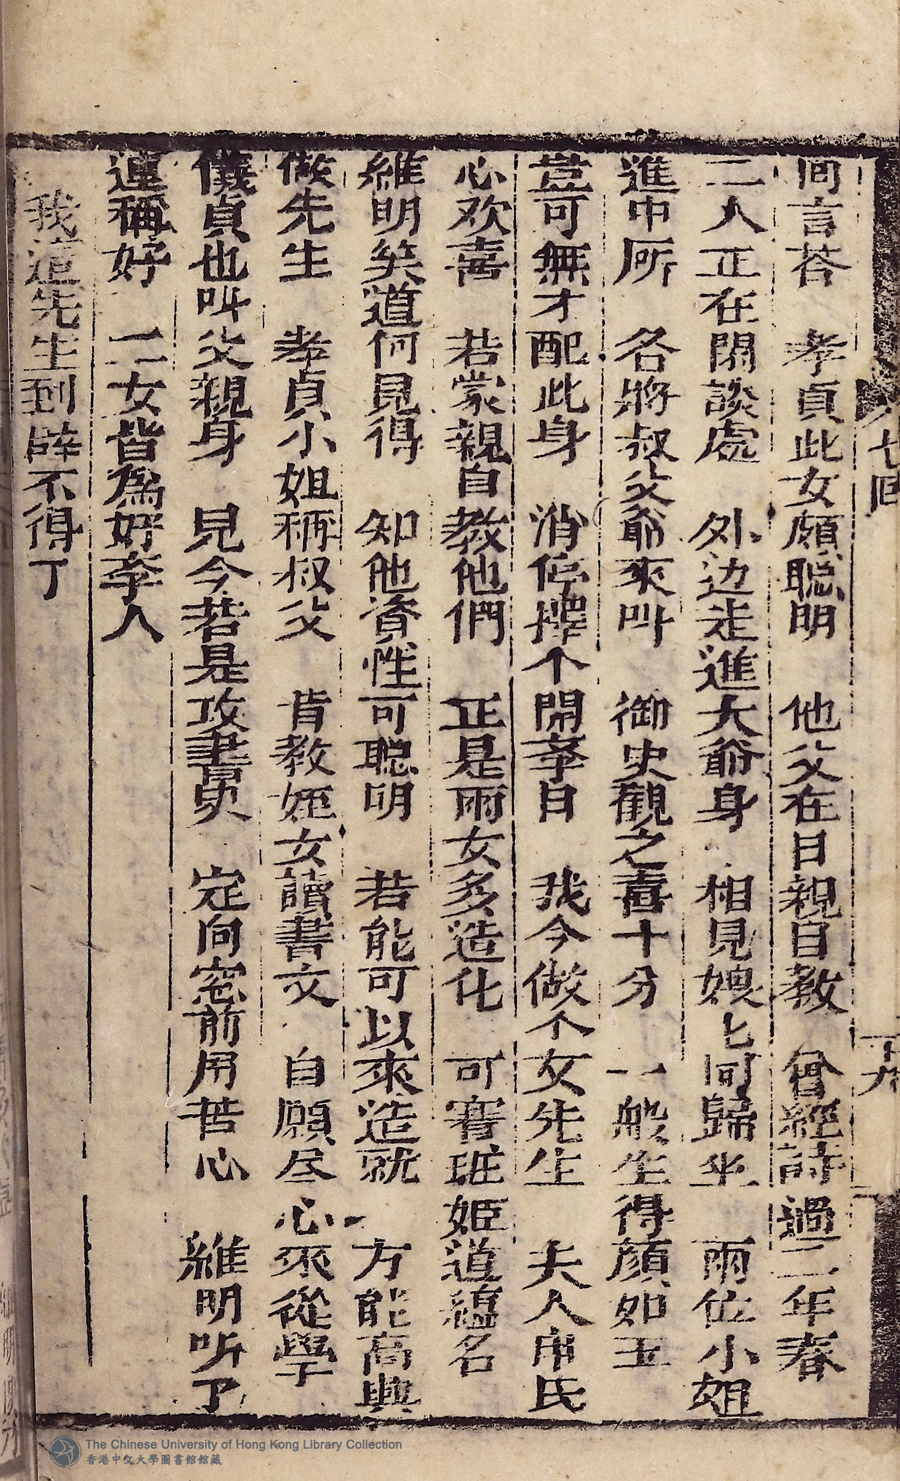 回言荅　孝貞此女頗聪明　他父在日親自教　曾經詩過二年春
二人正在閑談處　外边走進大爺身　相見娘匕同歸坐　兩位小姐
進中所　各將叔父爺來叫　御史觀之喜十分　一般生得顔如玉
豈可無才配此身　消停擇个開孝日　我今做个女先生　夫人席氏
心欢喜　若蒙親自教他們　正是兩女多造化　可賽班姬道緼名
維明笑道何見得　知他資性可聪明　若能可以來造就　方能高興
做先生　孝貞小姐称叔父　肯教姪女讀書文　自願尽心來從學
儀貞也叫父親身　見今若是攻書史　定向窓前用苦心　維明听了
連稱好　二女皆為好李人
我這先生到辞不得了
七回
十九
The Chinese University of Hong Kong Library Collection
香港中文大學圖書館館藏